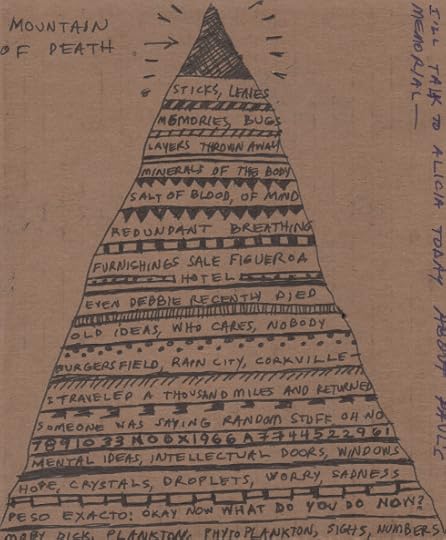 MOUNTAIN
OF DEATH
STICKS, LEAVES
MEMORIES, BUGS
LAYERS THROWN AWAY
MINERALS OF THE BODY
SALT OF BLOOD, OF MIND
REDUNDANT BREATHING
FURNISHINGS SALE FIGUEROA
HOTEL
EVEN DEBBIE RECENTLY DIED
OLD IDEAS, WHO CARES, NOBODY
BURGERSFIELD, RAIN CITY, CORKVILLE—
I TRAVELED A THOUSAND MILES AND RETURNED
SOMEONE WAS SAYING RANDOM STUFF OH NO
MENTAL IDEAS, INTELLECTUAL DOORS, WINDOWS
HOPE, CRYSTALS, DROPLETS, WORRY, SADNESS
PESO EXACTO: OKAY NOW WHAT DO YOU DO NOW?
MOBY DICK, PLANKTON, PHYTOPLANKTON, SIGHS, NUMBERS
I'LL TALK TO ALICIA TODAY ABOUT PAUL'S
MEMORIAL—